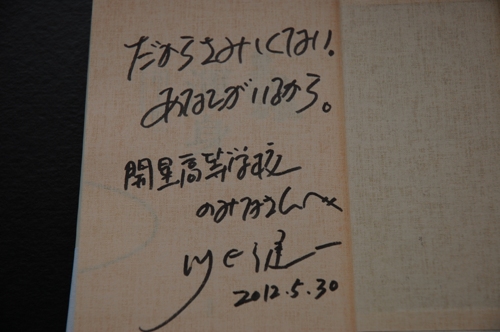 だからさみしくない。
あなたがいるから。
開星高等学校
のみなさんへ
川上健一
2012.5.30